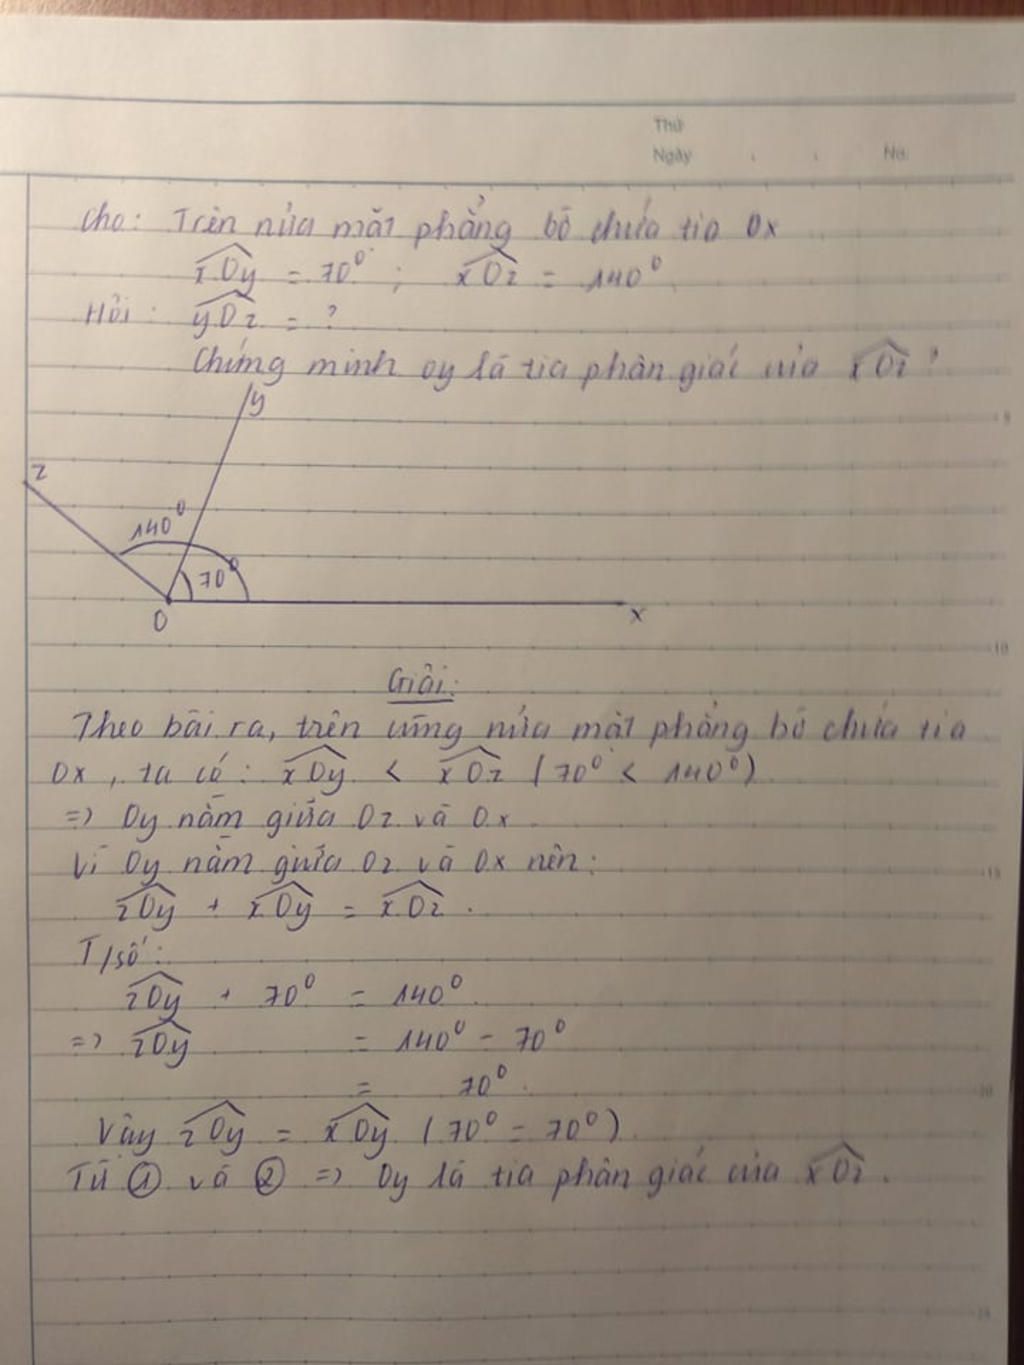 Thứ
Ngày . . No.
Cho: Trên nửa mặt phẳng bờ chứa tia Ox
xOy = 70⁰ ; xOz = 140⁰
Hỏi: yOz = ?
Chứng minh oy là tia phân giác của xOz ?
y
z
140⁰
70⁰
O
x
5
10
Giải:
Theo bài ra, trên cùng nửa mặt phẳng bờ chứa tia
Ox, ta có: xOy < xOz (70⁰ < 140⁰)
=> Oy nằm giữa Oz và Ox.
Vì Oy nằm giữa Oz và Ox nên:
15
zOy + xOy = xOz.
T/số:
zOy + 70⁰ = 140⁰
=> zOy = 140⁰ - 70⁰
= 70⁰.
Vậy zOy = xOy (70⁰ = 70⁰)
Từ ① và ② => Oy là tia phân giác của xOz.